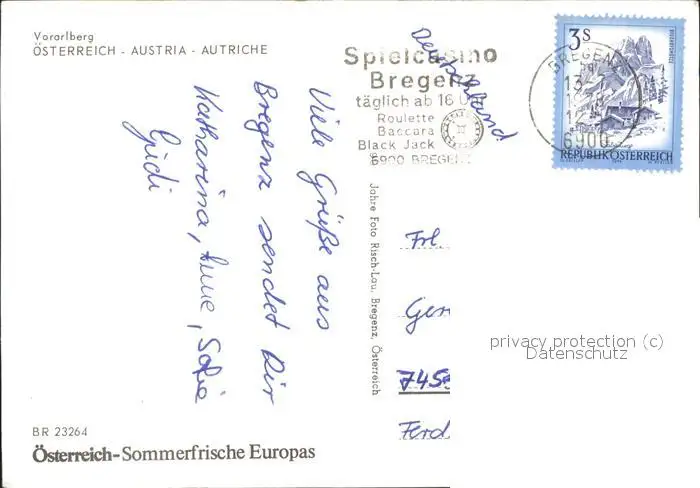 Vorarlberg
ÖSTERREICH - AUSTRIA - AUTRICHE
Viele Grüße aus
Bregenz sendet Dir
Katharina, Anne, Sofie
Gidi
BR 23264
Österreich-Sommerfrische Europas
Jahre Foto Risch-Lau, Bregenz, Österreich
Spielcasino
Bregenz
täglich ab 16 U
Roulette
Baccara
Black Jack
6900 BREGENZ
Deutschland
BREGENZ
6900
3S
REPUBLIK ÖSTERREICH
Frl.
Ger
745
Ferd
privacy protection (c)
Datenschutz